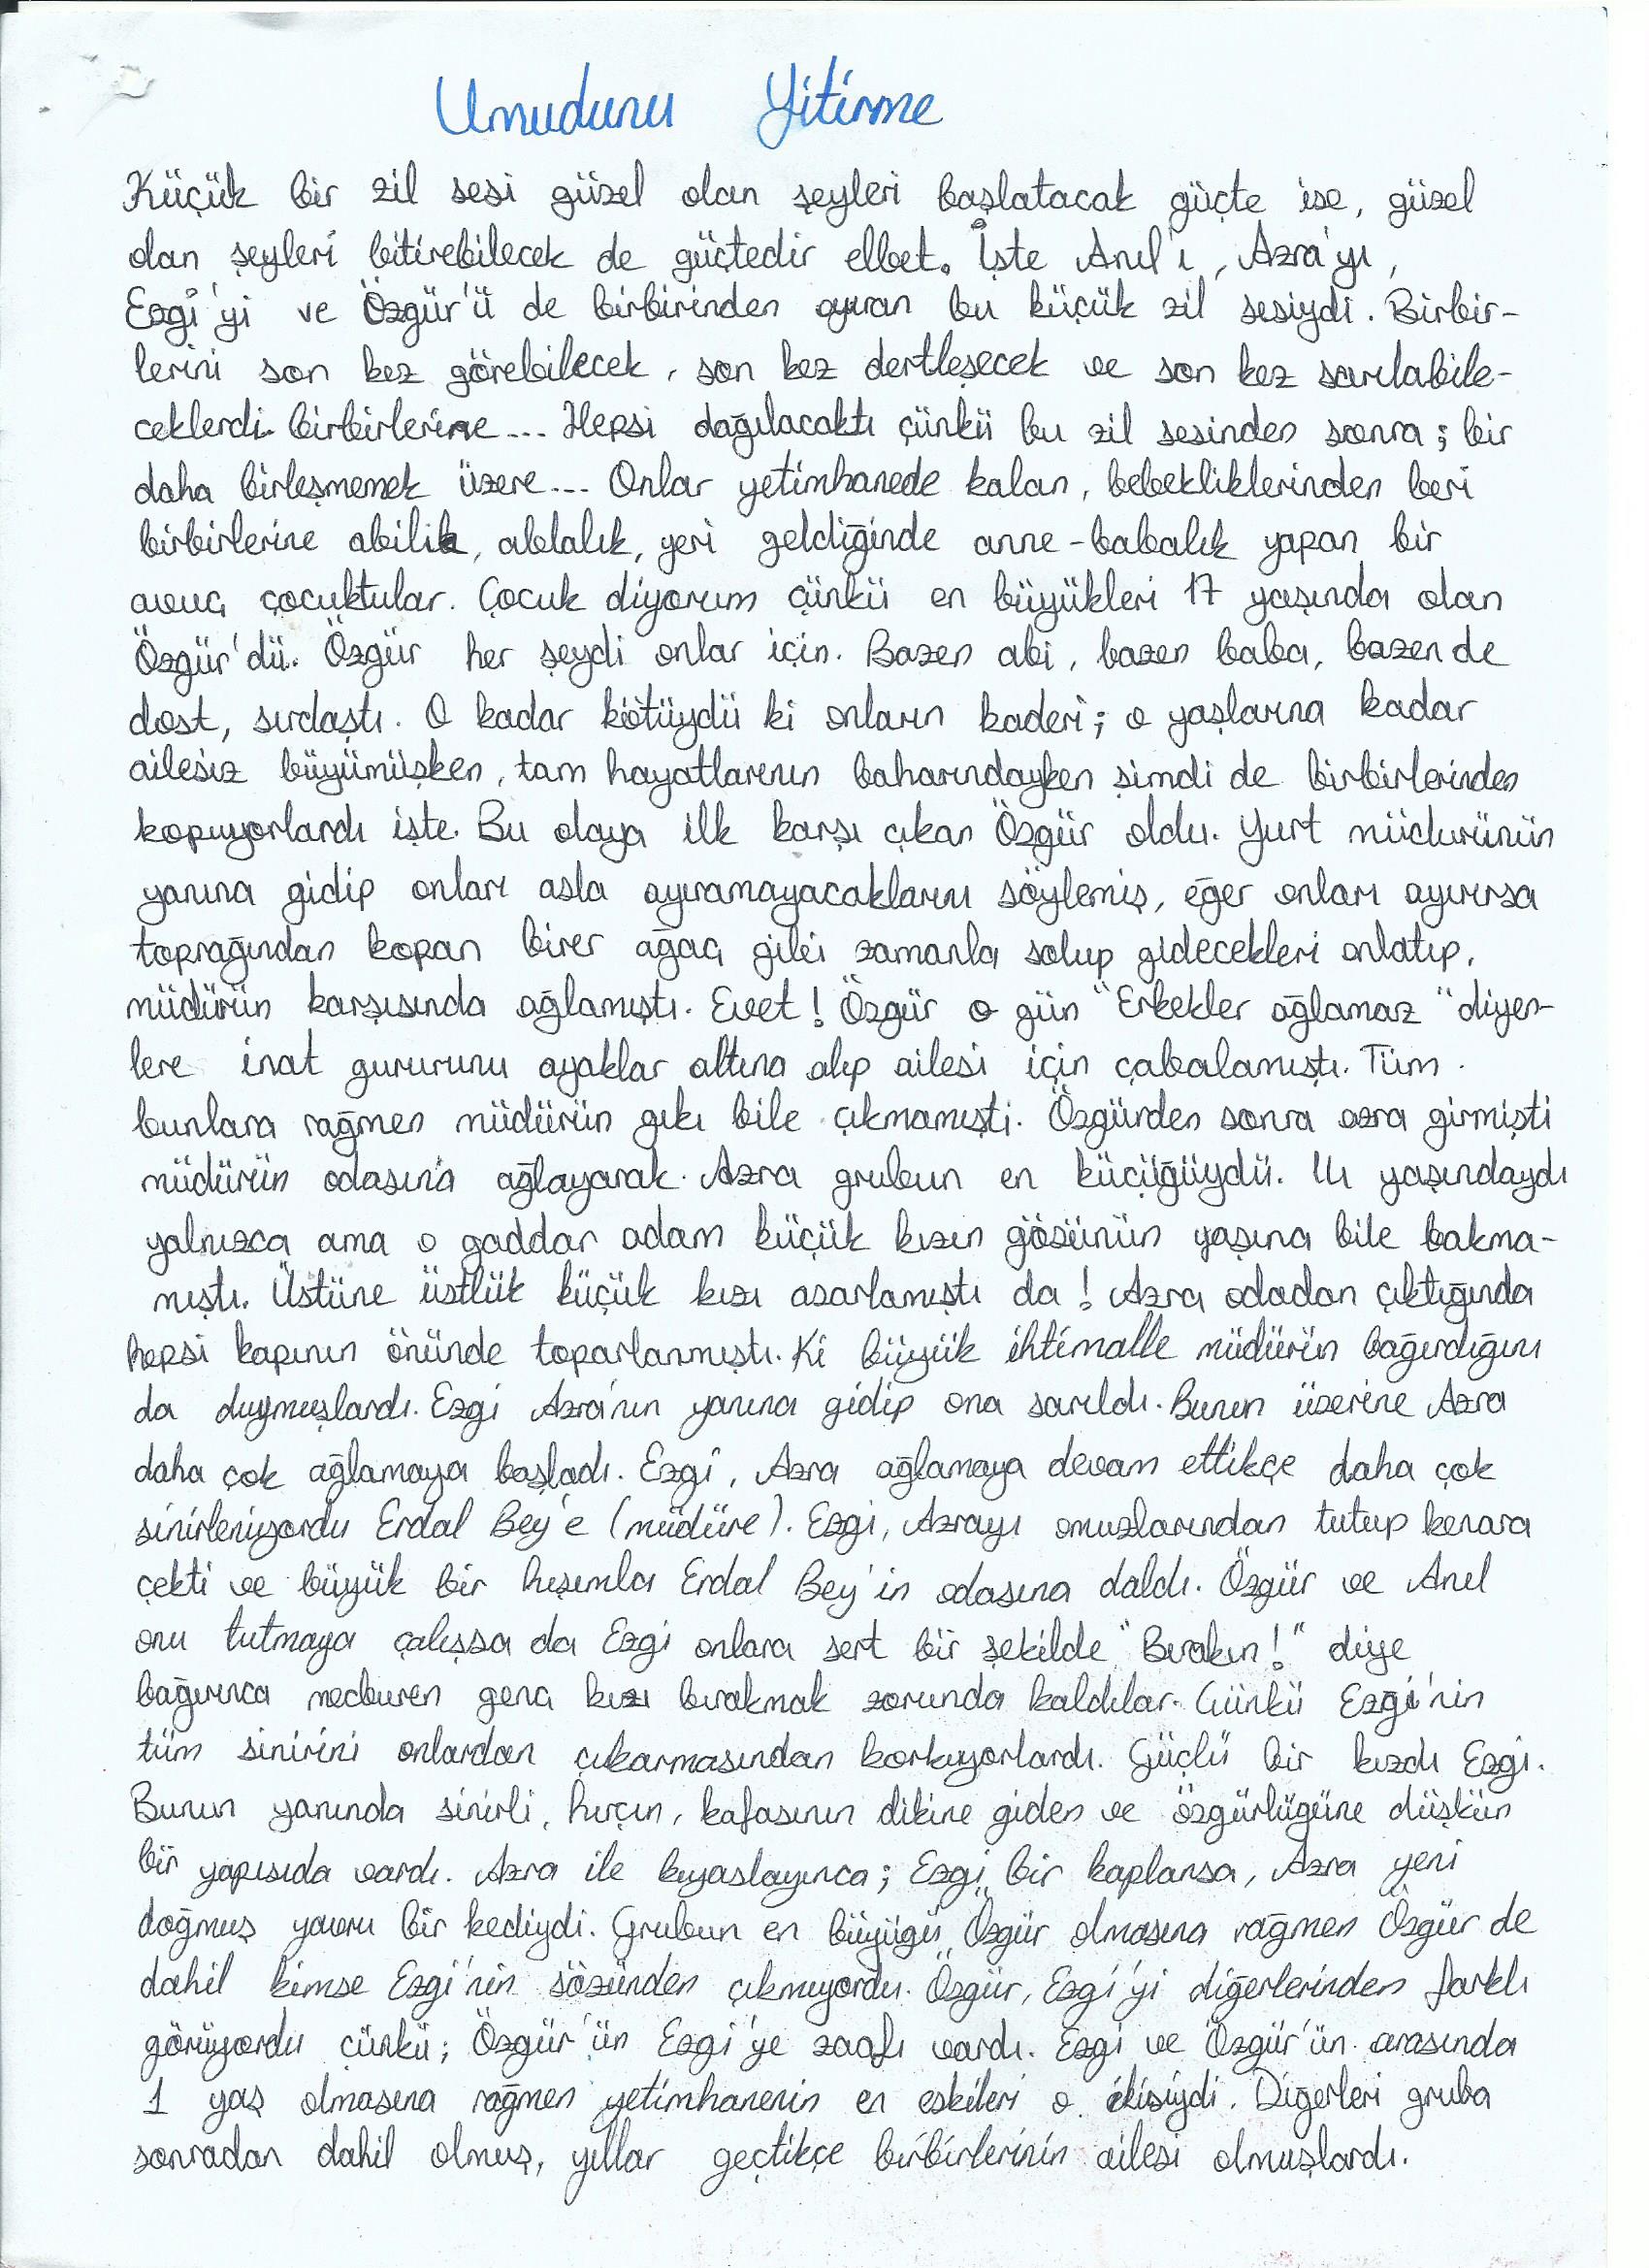 Umudunu Yitirme
Küçük bir zil sesi güzel olan şeyleri başlatacak güçte ise, güzel
olan şeyleri bitirebilecek de güçtedir elbet. İşte Anıl'ı, Azra'yı,
Ezgi'yi ve Özgür'ü de birbirinden ayıran bu küçük zil sesiydi. Birbir-
lerini son kez görebilecek, son kez dertleşecek ve son kez sarılabile-
ceklerdi birbirlerine... Hepsi dağılacaktı çünkü bu zil sesinden sonra; bir
daha birleşmemek üzere... Onlar yetimhanede kalan, bebekliklerinden beri
birbirlerine abilik, ablalık, yeri geldiğinde anne-babalık yapan bir
avuç çocuktular. Çocuk diyorum çünkü en büyükleri 17 yaşında olan
Özgür'dü. Özgür her şeydi onlar için. Bazen abi, bazen baba, bazen de
dost, sırdaştı. O kadar kötüydü ki onların kaderi; o yaşlarına kadar
ailesiz büyümüşken, tam hayatlarının baharındayken şimdi de birbirlerinden
kopuyorlardı işte. Bu olaya ilk karşı çıkan Özgür oldu. Yurt müdürünün
yanına gidip onları asla ayıramayacaklarını söylemiş, eğer onları ayırırsa
toprağından kopan birer ağaç gibi zamanla solup gidecekleri anlatıp,
müdürün karşısında ağlamıştı. Evet! Özgür o gün "Erkekler ağlamaz" diyen-
lere inat gururunu ayaklar altına alıp ailesi için çabalamıştı. Tüm
bunlara rağmen müdürün gıkı bile çıkmamıştı. Özgürden sonra azra girmişti
müdürün odasına ağlayarak. Azra grubun en küçüğüydü. 14 yaşındaydı
yalnızca ama o gaddar adam küçük kızın gözünün yaşına bile bakma-
mıştı. Üstüne üstlük küçük kızı azarlamıştı da! Azra odadan çıktığında
hepsi kapının önünde toparlanmıştı. Ki büyük ihtimalle müdürün bağırdığını
da duymuşlardı. Ezgi Azra'nın yanına gidip ona sarıldı. Bunun üzerine Azra
daha çok ağlamaya başladı. Ezgi, Azra ağlamaya devam ettikçe daha çok
sinirleniyordu Erdal Bey'e (müdüre). Ezgi, Azrayı omuzlarından tutup kenara
çekti ve büyük bir hışımla Erdal Bey'in odasına daldı. Özgür ve Anıl
onu tutmaya çalışsa da Ezgi onlara sert bir şekilde "Bırakın!" diye
bağırınca mecburen genç kızı bırakmak zorunda kaldılar. Çünkü Ezgi'nin
tüm sinirini onlardan çıkarmasından korkuyorlardı. Güçlü bir kızdı Ezgi.
Bunun yanında sinirli, hırçın, kafasının dikine giden ve özgürlügüne düşkün
bir yapısıda vardı. Azra ile kıyaslayınca; Ezgi bir kaplansa, Azra yeni
doğmuş yavru bir kediydi. Grubun en büyügü Özgür olmasına rağmen Özgür de
dahil kimse Ezgi'nin sözünden çıkmıyordu. Özgür, Ezgi'yi diğerlerinden farklı
görüyordu çünkü; Özgür'ün Ezgi'ye zaafı vardı. Ezgi ve Özgür'ün arasında
1 yaş olmasına rağmen yetimhanenin en eskileri o ikisiydi. Diğerleri gruba
sonradan dahil olmuş, yıllar geçtikçe birbirlerinin ailesi olmuşlardı.